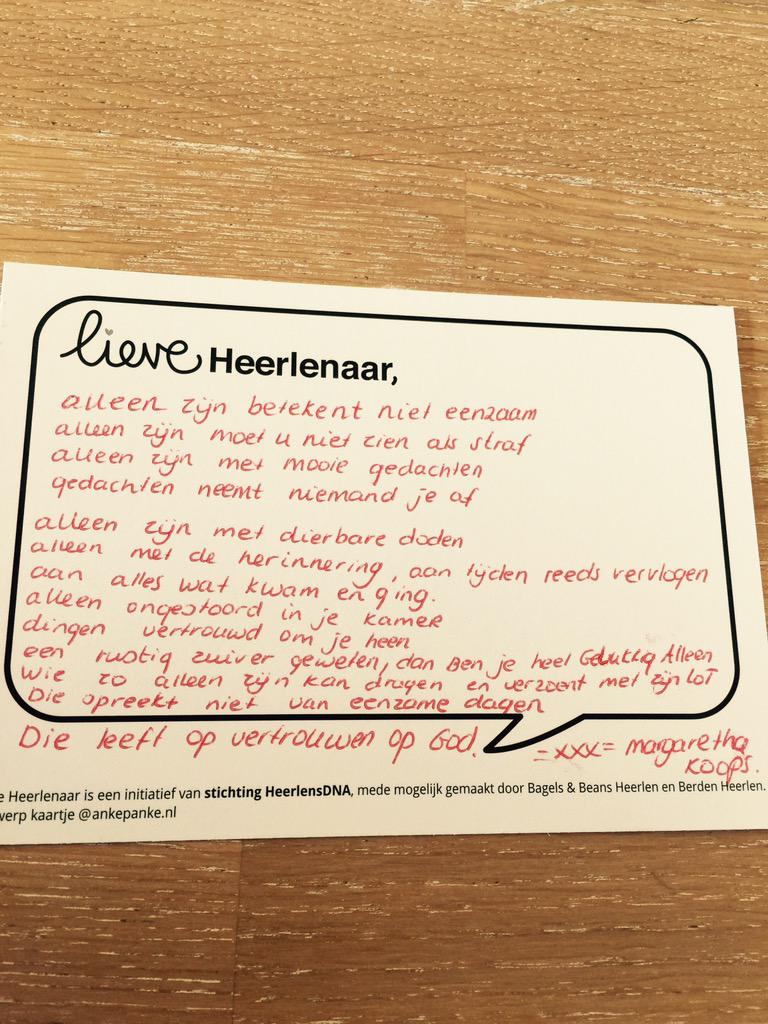 lieve Heerlenaar,
alleen zijn betekent niet eenzaam
alleen zijn moet u niet zien als straf
alleen zijn met mooie gedachten
gedachten neemt niemand je af
alleen zijn met dierbare doden
alleen met de herinnering, aan tijden reeds vervlogen
aan alles wat kwam en ging.
alleen ongestoord in je kamer
dingen vertrouwd om je heen
een rustig zuiver geweten, dan Ben je heel Gelukkig Alleen
wie zo alleen zijn kan dragen en verzoent met zijn loT
Die spreekt niet van eenzame dagen
Die leeft op vertrouwen op God.
=xxx= margaretha
KOOPS.
e Heerlenaar is een initiatief van stichting HeerlensDNA, mede mogelijk gemaakt door Bagels & Beans Heerlen en Berden Heerlen.
werp kaartje @ankepanke.nl